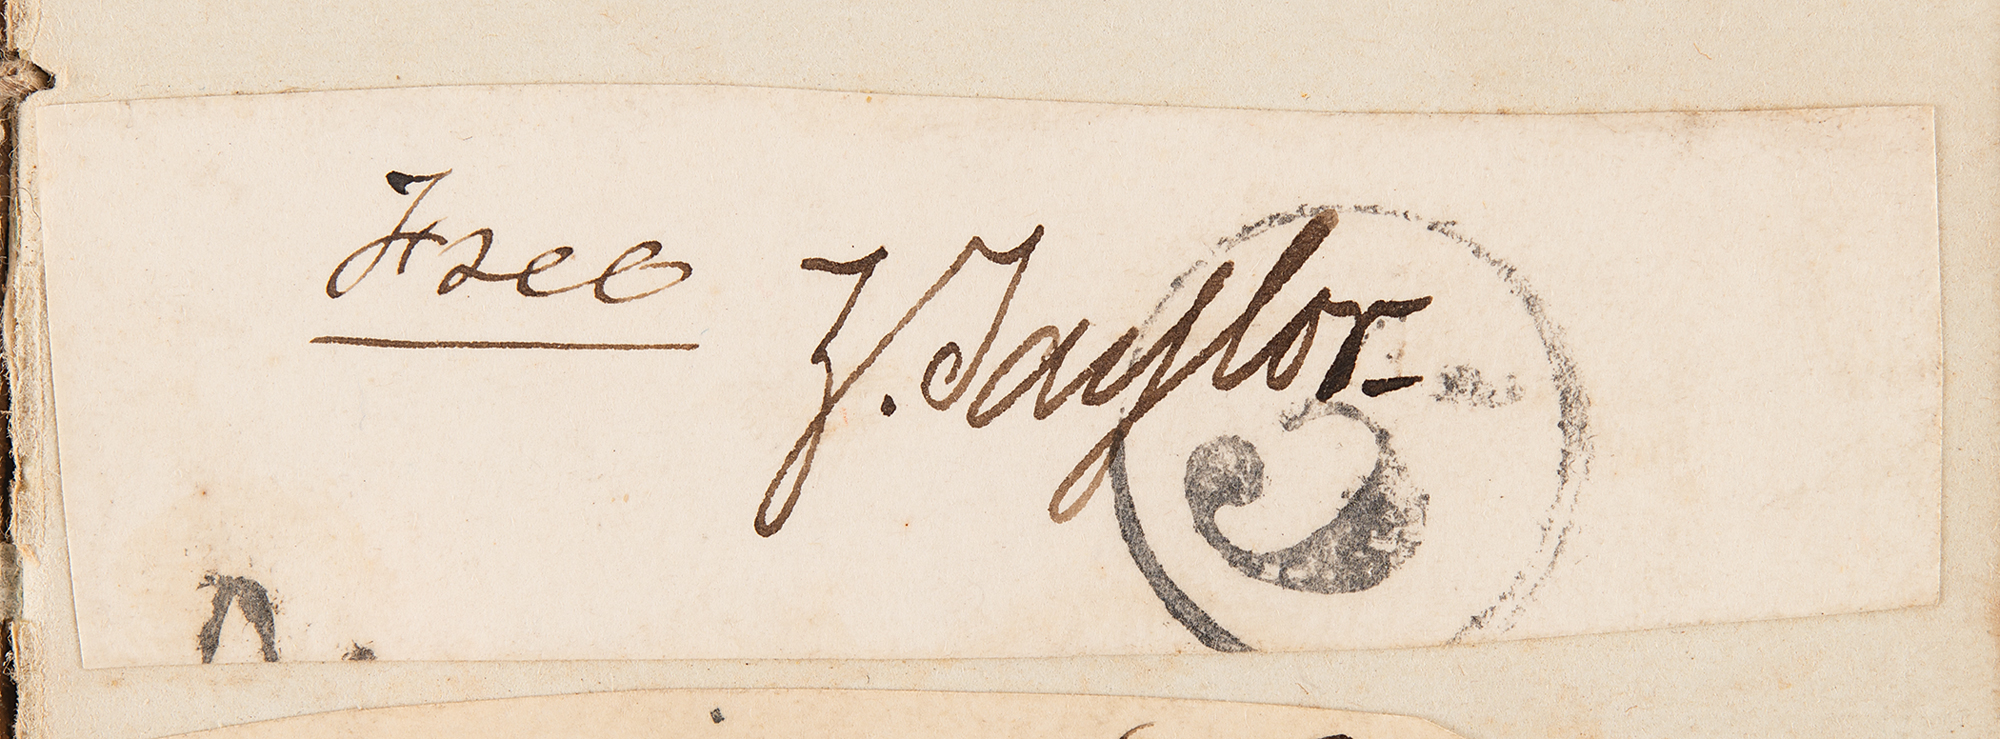 Free
Z. Taylor
5